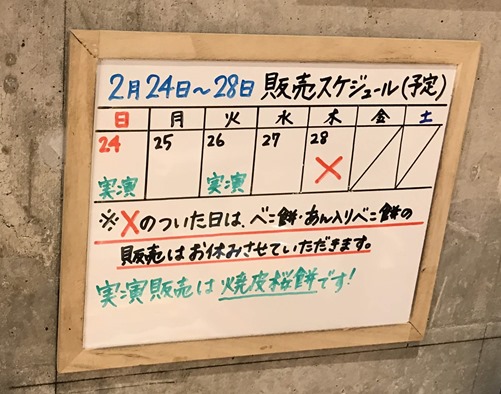 2月24日～28日 販売スケジュール(予定)
日 月 火 水 木 金 土
24 25 26 27 28
実演 実演 ×
※×のついた日は、べこ餅・あん入りべこ餅の
販売はお休みさせていただきます。
実演販売は焼皮桜餅です!